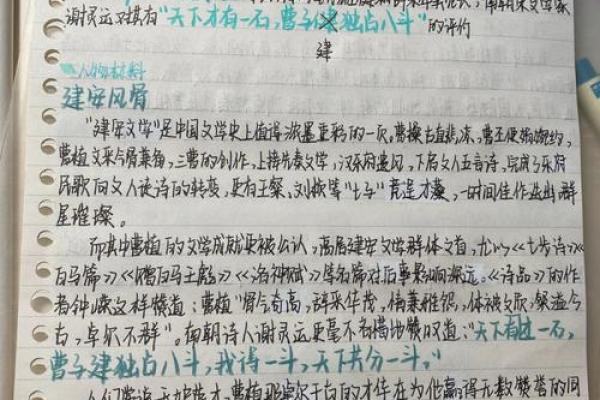 谢灵运对其有"天下才有一石,曹子建独占八斗"的评价
建
人物材料
建安风骨
"建安文学"是中国文学史上值得浓墨重彩的一页。曹操古直悲凉,曹丕便娟婉约,
曹植文采气骨兼备,三曹的创作,上接先秦文学,汉乐府遗风,下启文人五言诗,完成了乐府
民歌向文人徒诗的转变,更有王粲、刘桢等"七子"竞逞才藻,一时间佳作迭出群
星璀璨。
而其中曹植的文学成就更被公认,高居建安文学群体之首,尤以《七步诗》《
白马篇》《赠白马王彪》《洛神赋》等名篇对后事影响深远。《诗品》的作
者钟嵘这样赞道:曹植"骨气奇高,辞采华茂,情兼雅怨,体被文质,粲溢今
古,卓尔不群"。南朝诗人谢灵运更毫不吝惜地赞叹道:"天下有才一石,
曹子建独占八斗,我得一斗,天下共分一斗。"